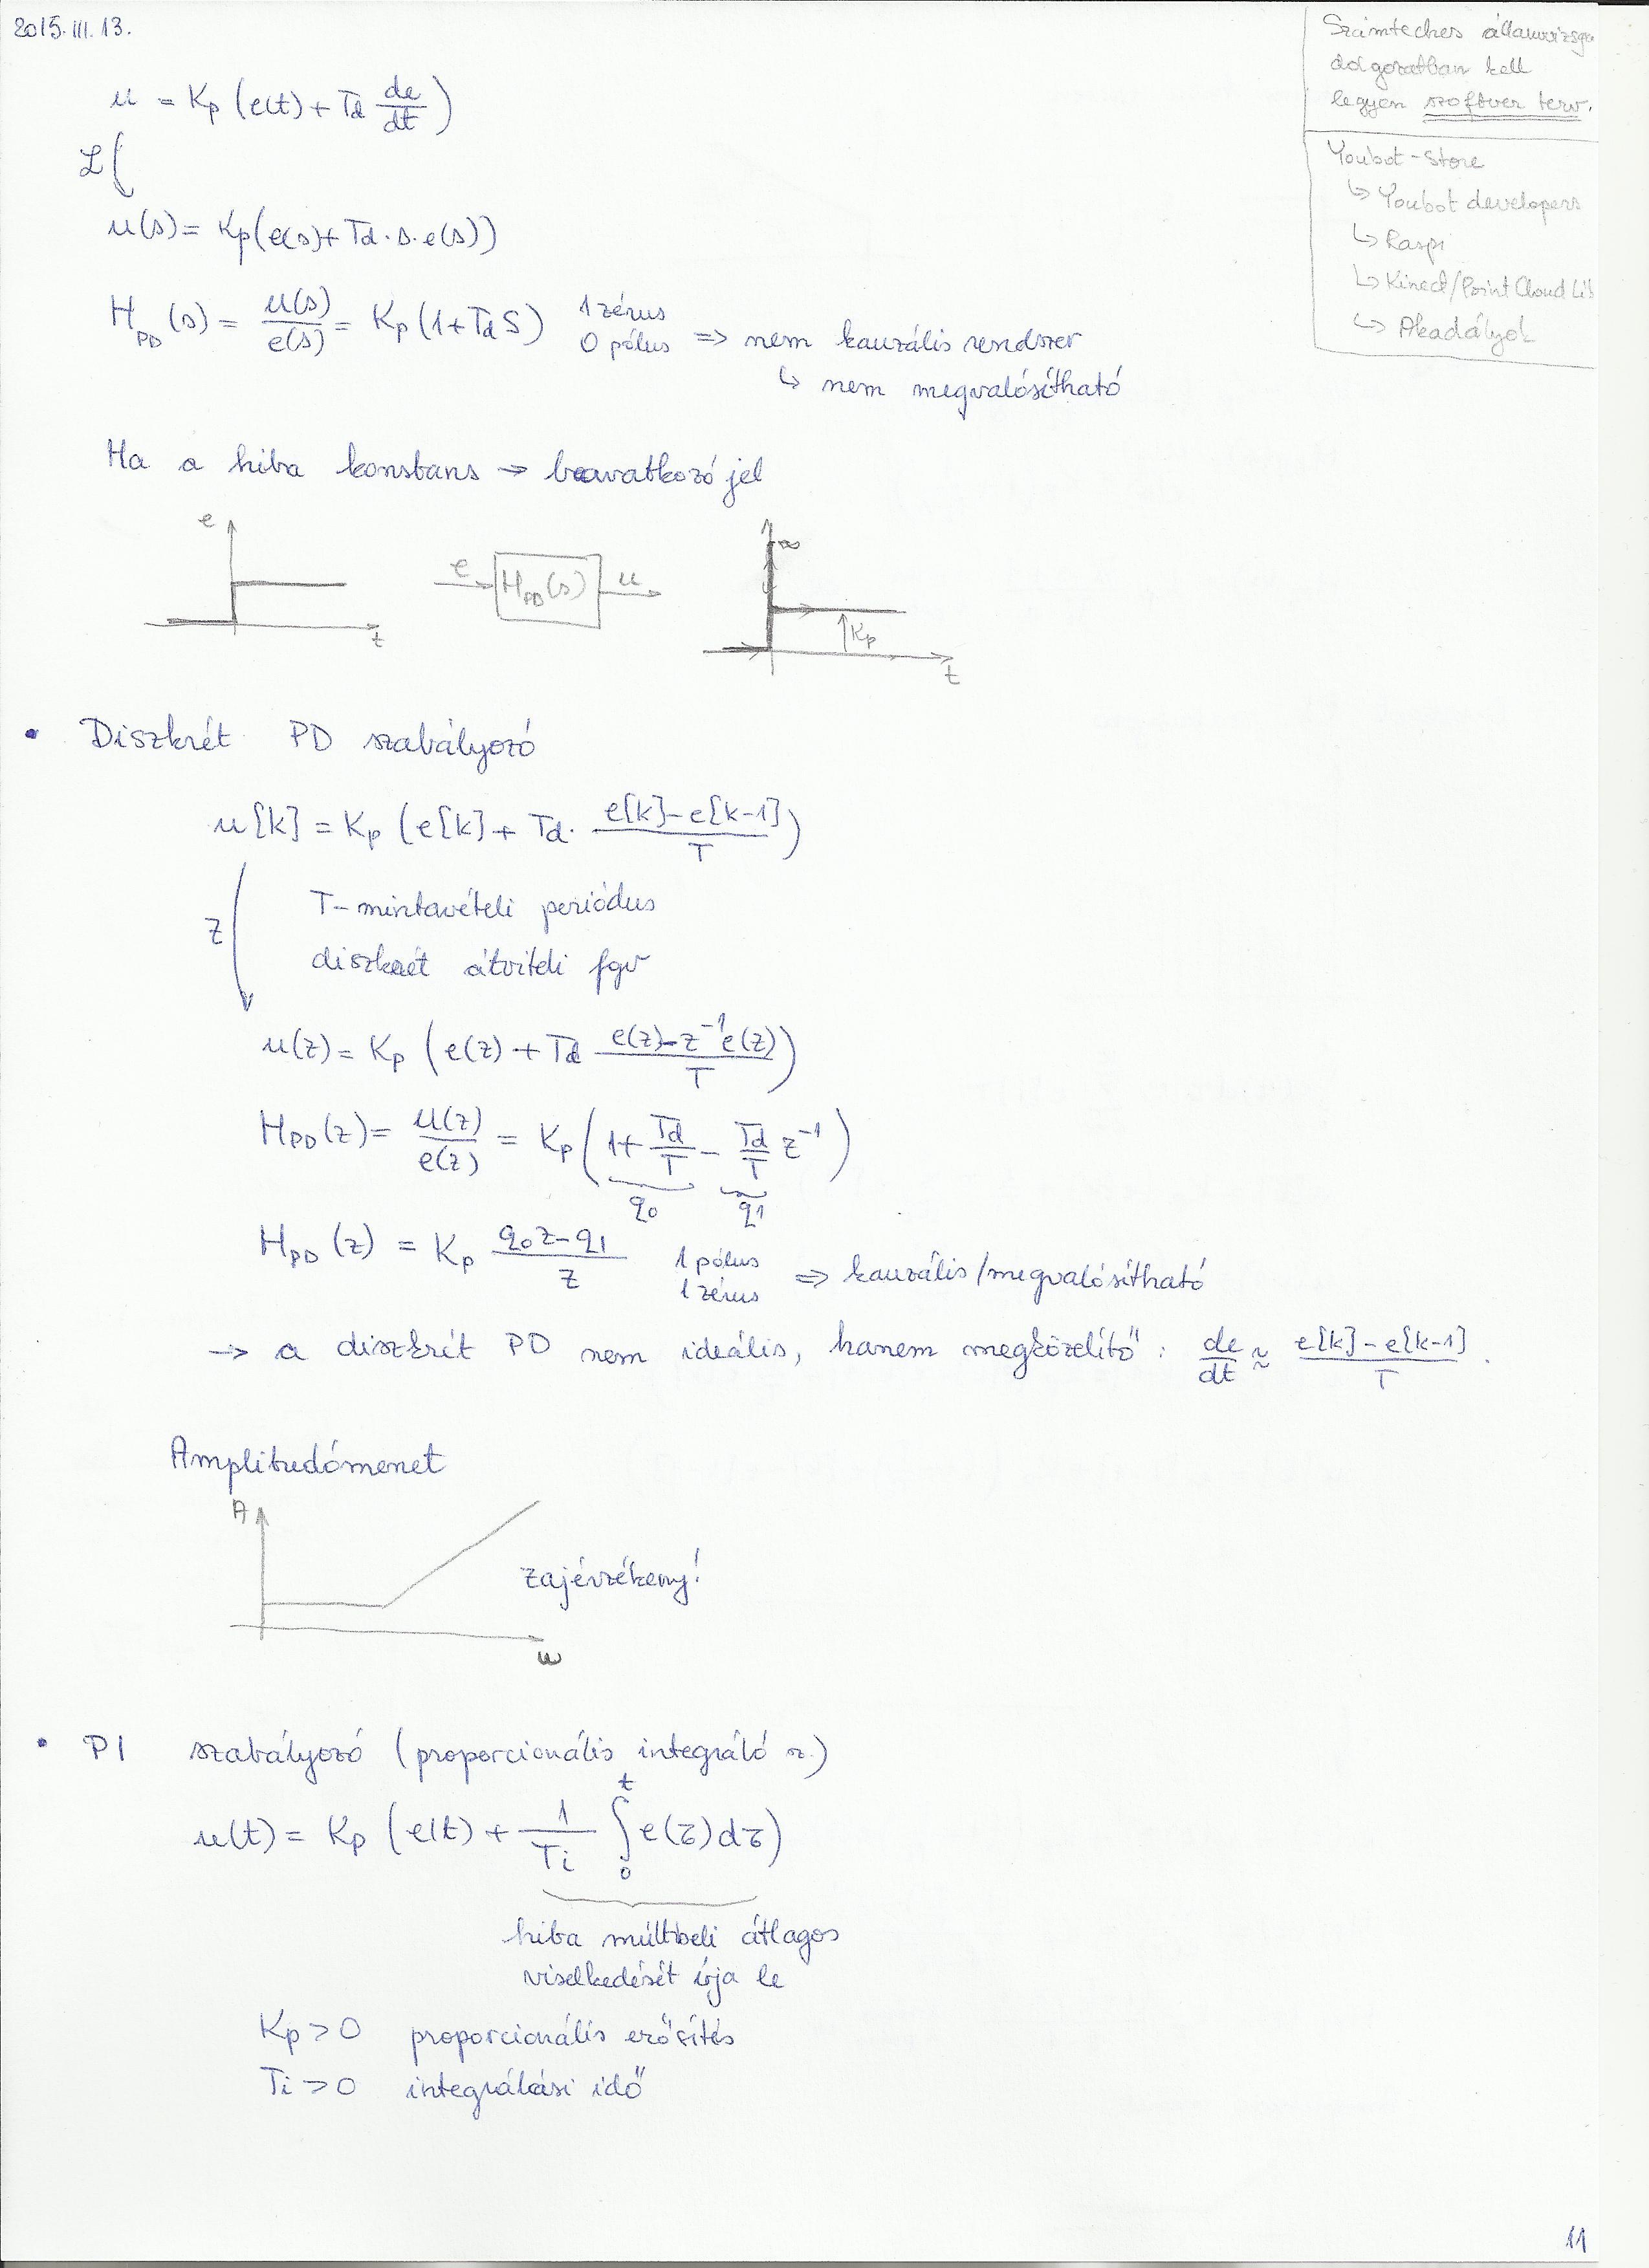 2015.III.13.
Számteches államvizsga
dolgozatban kell
legyen szoftver terv.
Youbot-Store
↳ Youbot developers
↳ Raspi
↳ Kinect/Point Cloud Lib
↳ Akadályok
u = Kp (e(t) + Td de/dt)
ℒ
u(s) = Kp(e(s) + Td·s·e(s))
H_PD(s) = u(s)/e(s) = Kp(1+Td S) 1 zérus
0 pólus => nem kauzális rendszer
↳ nem megvalósítható
Ha a hiba konstans → beavatkozó jel
e
t
e H_PD(s) u
∞
Kp
t
• Diszkrét PD szabályozó
u[k] = Kp (e[k] + Td· (e[k]-e[k-1])/T)
Z
T- mintavételi periódus
diszkrét átviteli fgv
u(z) = Kp (e(z) + Td (e(z)-z⁻¹e(z))/T)
H_PD(z) = u(z)/e(z) = Kp (1 + Td/T - Td/T z⁻¹)
q0 q1
H_PD(z) = Kp (q0z-q1)/z 1 pólus
1 zérus => kauzális/megvalósítható
→ a diszkrét PD nem ideális, hanem megközelítő: de/dt ≈ (e[k]-e[k-1])/T.
Amplitudómenet
A
zajérzékeny!
ω
• PI szabályozó (proporcionális integráló sz.)
u(t) = Kp (e(t) + 1/Ti ∫₀ᵗ e(τ)dτ)
hiba múltbeli átlagos
viselkedését írja le
Kp > 0 proporcionális erősítés
Ti > 0 integrálási idő
11